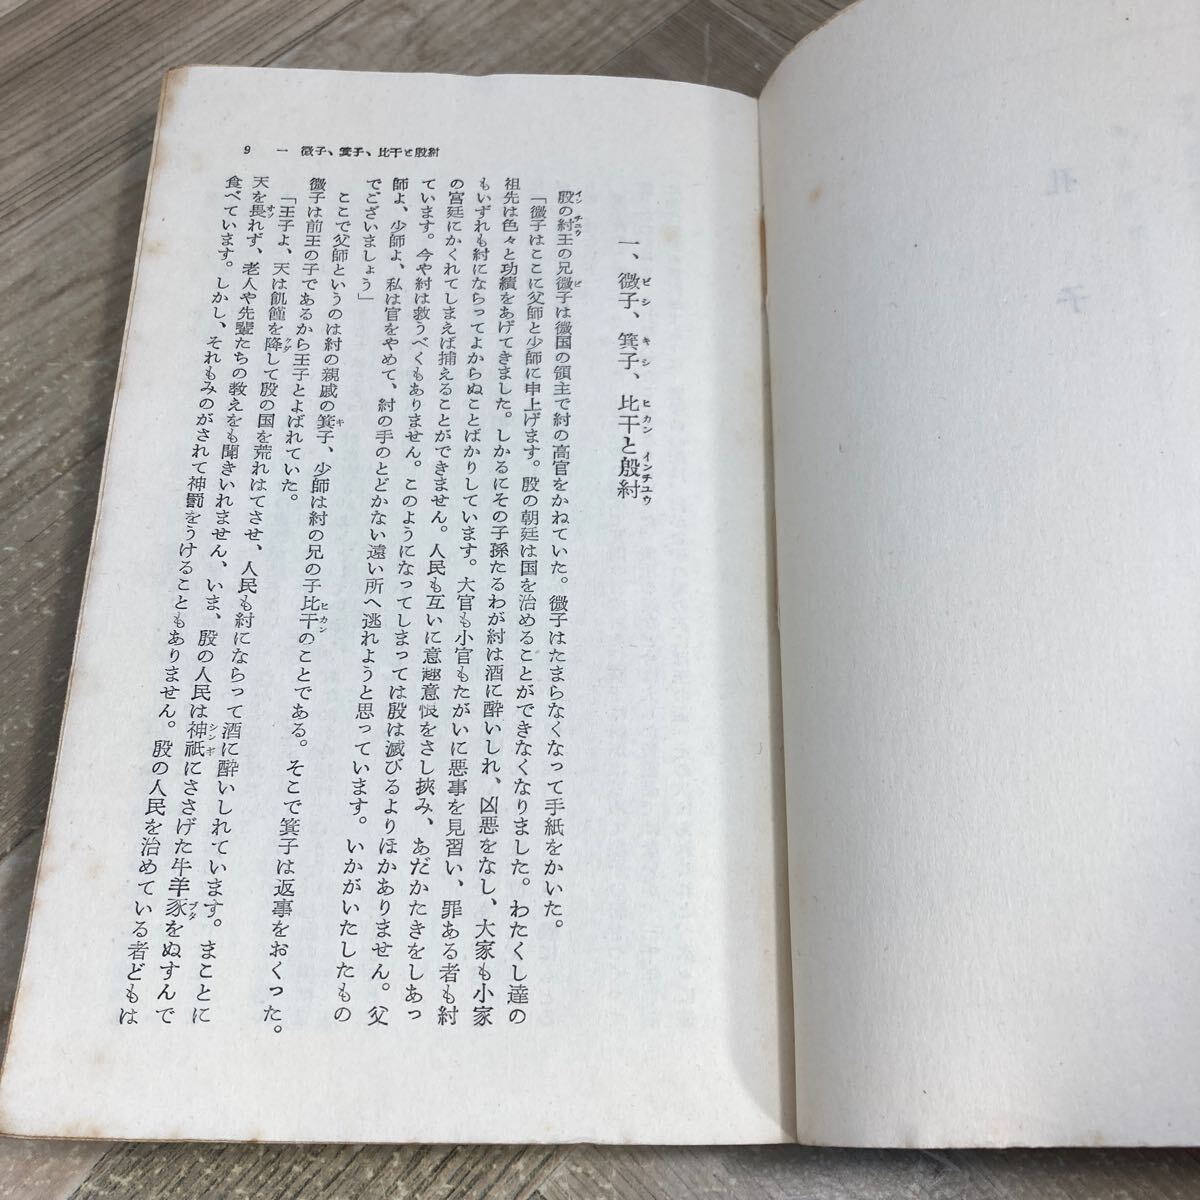 9　一　微子、箕子、比干と殷紂
一、微子、箕子、比干と殷紂
殷の紂王の兄微子は微国の領主で紂の高官をかねていた。微子はたまらなくなって手紙をかいた。
「微子はここに父師と少師に申上げます。殷の朝廷は国を治めることができなくなりました。わたくし達の
祖先は色々と功績をあげてきました。しかるにその子孫たるわが紂は酒に酔いしれ、凶悪をなし、大家も小家
もいずれも紂にならってよからぬことばかりしています。大官も小官もたがいに悪事を見習い、罪ある者も紂
の宮廷にかくれてしまえば捕えることができません。人民も互いに意趣意恨をさし挟み、あだかたきをしあっ
ています。今や紂は救うべくもありません。このようになってしまっては殷は滅びるよりほかありません。父
師よ、少師よ、私は官をやめて、紂の手のとどかない遠い所へ逃れようと思っています。いかがいたしたもの
でございましょう」
ここで父師というのは紂の親戚の箕子、少師は紂の兄の子比干のことである。そこで箕子は返事をおくった。
微子は前王の子であるから王子とよばれていた。
「王子よ、天は飢饉を降して殷の国を荒れはてさせ、人民も紂にならって酒に酔いしれています。まことに
天を畏れず、老人や先輩たちの教えをも聞きいれません、いま、殷の人民は神祇にささげた牛羊豕をぬすんで
食べています。しかし、それもみのがされて神罰をうけることもありません。殷の人民を治めている者どもは